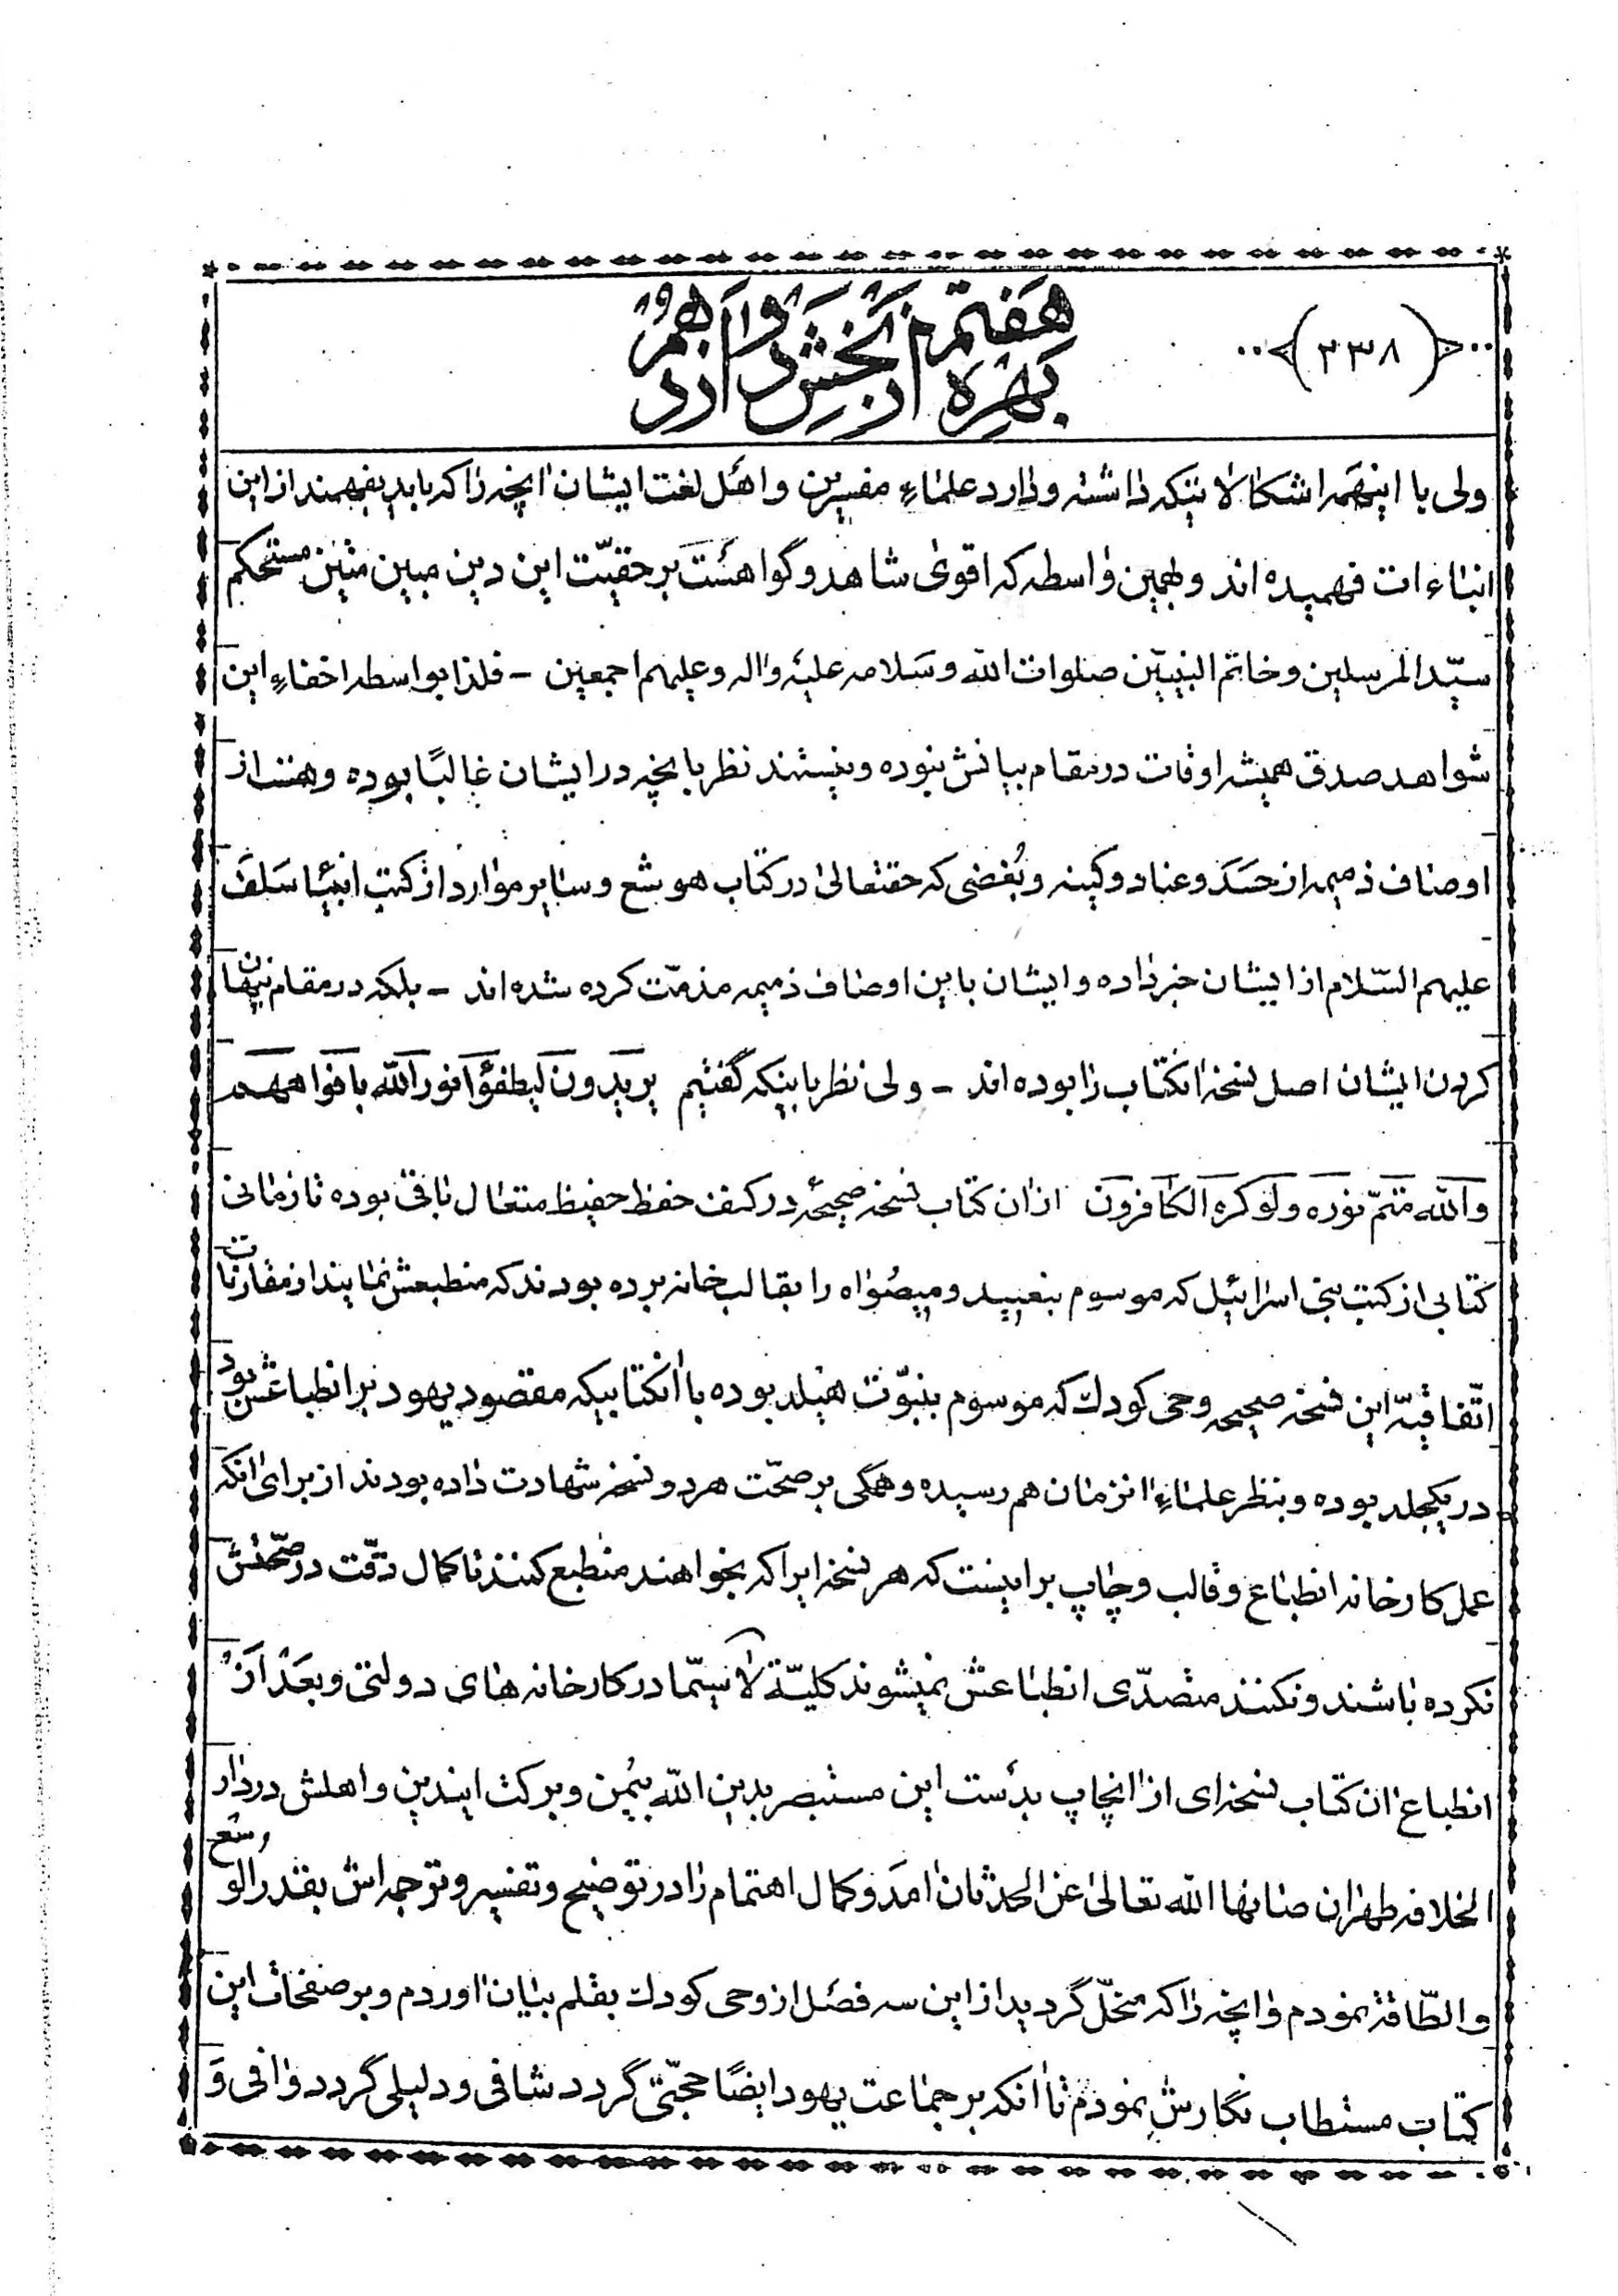 (٢٣٨)
بهره هفتم از بخش دوازدهم
ولی با اینهمه اشکالاتیکه داشته و دارد علماءِ مفسرین و اهل لغت ایشان انچه را که باید بفهمند از این
انباءات فهمیده اند و بهمین واسطه که اقوی شاهد و گواهست بر حقیّت این دین مبین متین مستحکم
سیّد المرسلین و خاتم النبیّین صلوات الله و سلامه علیه واله وعلیهم اجمعین – فلذا بواسطه اخفاءِ این
شواهد صدق همیشه اوقات در مقام بیانش نبوده و نیستند نظر بانچه در ایشان غالبًا بوده و هست از
اوصاف ذمیمه از حسد و عناد و کینه و بُغضی که حقتعالی در کتاب هوشع و سایر موارد از کتب انبیا سلف
علیهم السّلام از ایشان خبر داده و ایشان باین اوصاف ذمیمه مذمّت کرده شده اند – بلکه در مقام پنهان
کردن ایشان اصل نسخه انکتاب را بوده اند – ولی نظر باینکه گفتیم یریدون لیطفؤا نور الله بافواههم
والله متمّ نوره ولو کره الکافرون از ان کتاب نسخه صحیحهٔ در کنف حفظ حفیظ متعال باقی بوده تا زمانی
کتابی از کتب بنی اسرائیل که موسوم بنعیید و میصُواه را بقالب خانه برده بودند که منطبعش نمایند از مقارنات
اتّفاقیّه این نسخه صحیحه وحی کودك که موسوم بنبوّت هیلد بوده با انکتابیکه مقصود یهود بر انطباعش بود
در یکجلد بوده و بنظر علماءِ انزمان هم رسیده و همگی بر صحّت هر دو نسخه شهادت داده بودند از برای انکه
عمل کارخانه انطباع و قالب و چاپ بر اینست که هر نسخه ایرا که بخواهند منطبع کنند تا کمال دقّت در صحّتش
نکرده باشند و نکنند متصدّی انطباعش نمیشوند کلیّة لاسیّما در کارخانه های دولتی و بعد از
انطباع ان کتاب نسخه ای از انچاپ بدست این مستبصر بدین الله بیُمن و برکت ایندین و اهلش در دار
الخلافه طهران صانها الله تعالی عن الحدثان امد و کمال اهتمام را در توضیح و تفسیر و ترجمه اش بقدر الوسع
والطّاقة نمودم و انچه را که منحلّ گردید از این سه فصل از وحی کودك بقلم بیان اوردم و بر صفحات این
کتاب مستطاب نگارش نمودم تا انکه بر جماعت یهود ایضًا حجّتی گردد شافی و دلیلی گردد وافی و